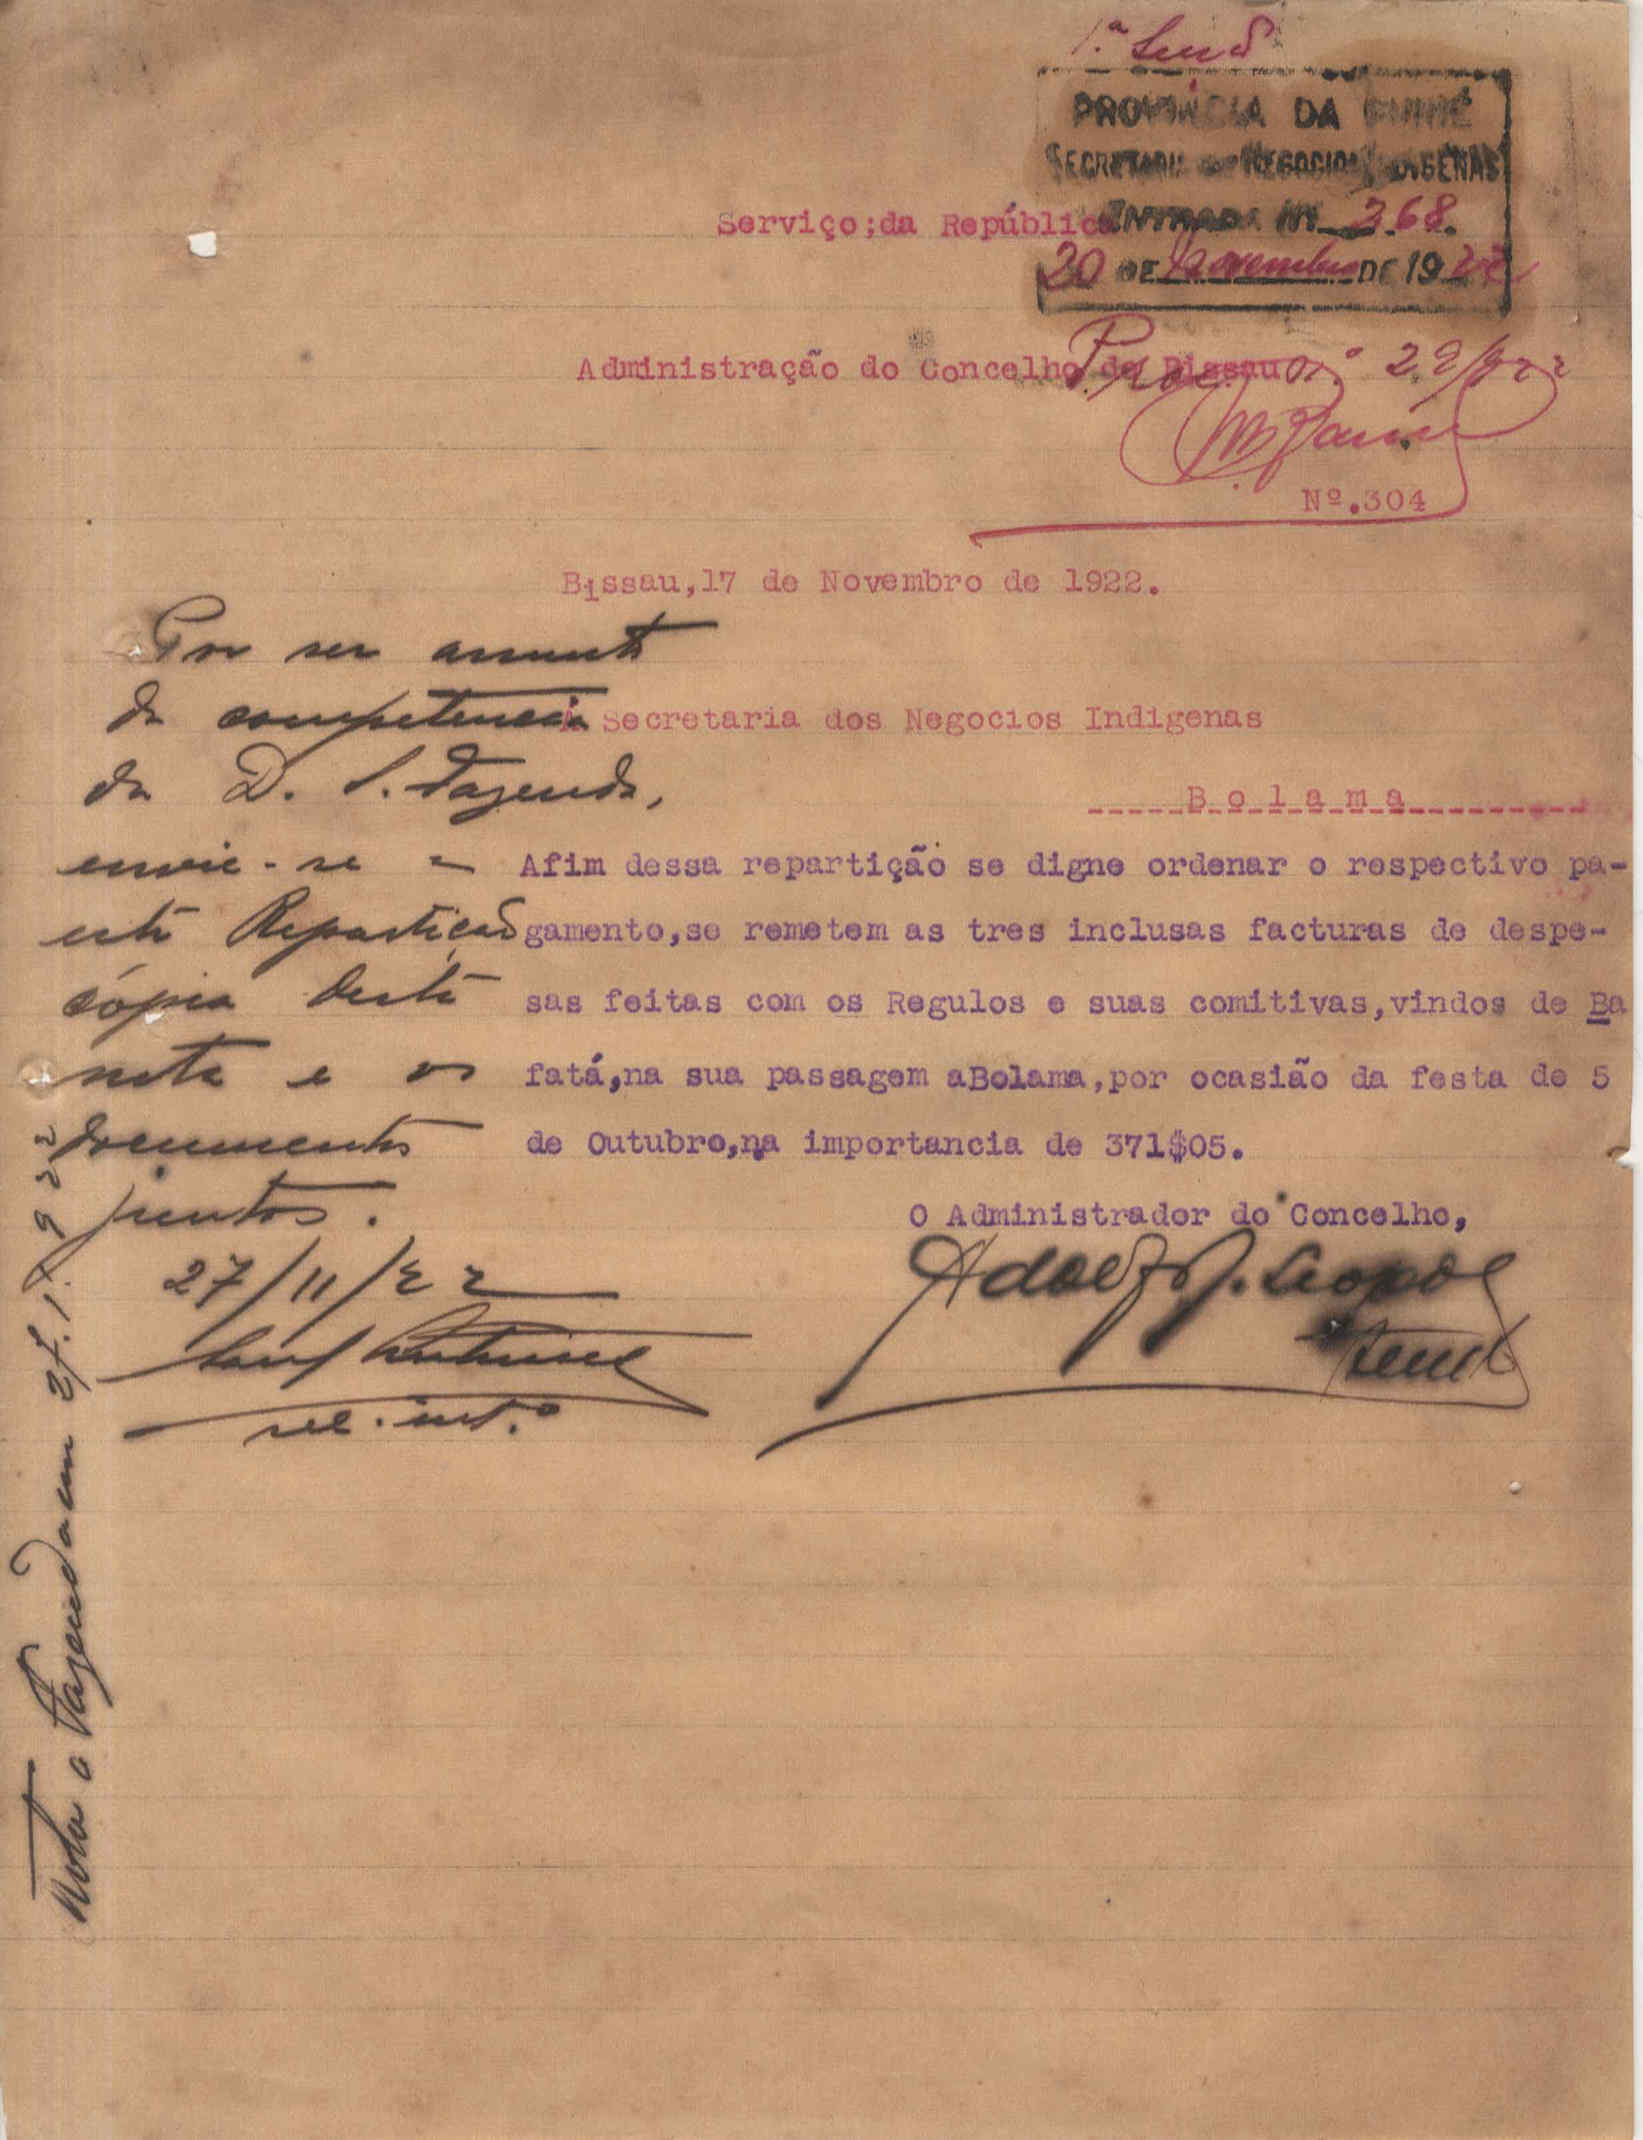 1.ª
PROVINCIA DA GUINÉ
SECRETARIA DOS NEGOCIOS INDIGENAS
ENTRADA Nº 368.
20 DE Novembro DE 1922
Serviço;da República
Administração do Concelho de Bissau
Proc. n.º 29/922
Nº.304
Bissau,17 de Novembro de 1922.
Á Secretaria dos Negocios Indigenas
-----B-o-l-a-m-a----------
Afim dessa repartição se digne ordenar o respectivo pa-
gamento,se remetem as tres inclusas facturas de despe-
sas feitas com os Regulos e suas comitivas,vindos de Ba
fatá,na sua passagem aBolama,por ocasião da festa de 5
de Outubro,na importancia de 371$05.
O Administrador do Concelho,
Adolfo J. Leopol
Por ser assunto
da competencia
da D. S. Fazenda,
envie-se a
esta Repartição
cópia desta
nota e os
documentos
juntos.
27/11/22
sec. int.º
Nota a Fazenda em 27.11.922